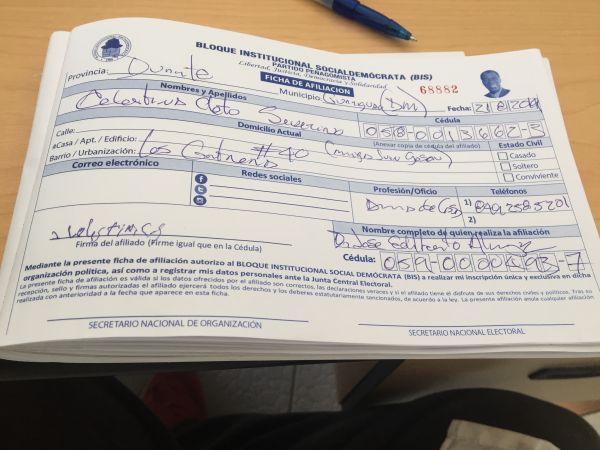 BLOQUE INSTITUCIONAL SOCIALDEMÓCRATA (BIS)
PARTIDO PEÑAGOMISTA
Libertad, Justicia, Democracia y Solidaridad
FICHA DE AFILIACION
68882
Provincia: Duarte
Municipio: (DM)
Fecha:
Nombres y Apellidos
Cédula
Celestino Soto Severino
058-0013662-3
Domicilio Actual
(Anexar copia de cédula del afiliado)
Calle:
#Casa / Apt. / Edificio: #40
Barrio / Urbanización: Los
Estado Civil
Casado
Soltero
Conviviente
Correo electrónico
Redes sociales
Profesión/Oficio
Teléfonos
1) 8492585201
2)
Firma del afiliado (Firme igual que en la Cédula)
Nombre completo de quien realiza la afiliación
Dr. José
Cédula:
Mediante la presente ficha de afiliación autorizo al BLOQUE INSTITUCIONAL SOCIAL DEMÓCRATA (BIS) a realizar mi inscripción única y exclusiva en dicha
organización política, así como a registrar mis datos personales ante la Junta Central Electoral.
La presente ficha de afiliación es válida si los datos ofrecidos por el afiliado son correctos, las declaraciones veraces y si el afiliado tiene el disfrute de sus derechos civiles y políticos. Tras su
recepción, sello y firmas autorizadas el afiliado ejercerá todos los derechos y los deberes estatutariamente sancionados, de acuerdo a la ley. La presente afiliación anula cualquier afiliación
realizada con anterioridad a la fecha que aparece en esta ficha.
SECRETARIO NACIONAL DE ORGANIZACIÓN
SECRETARIO NACIONAL ELECTORAL